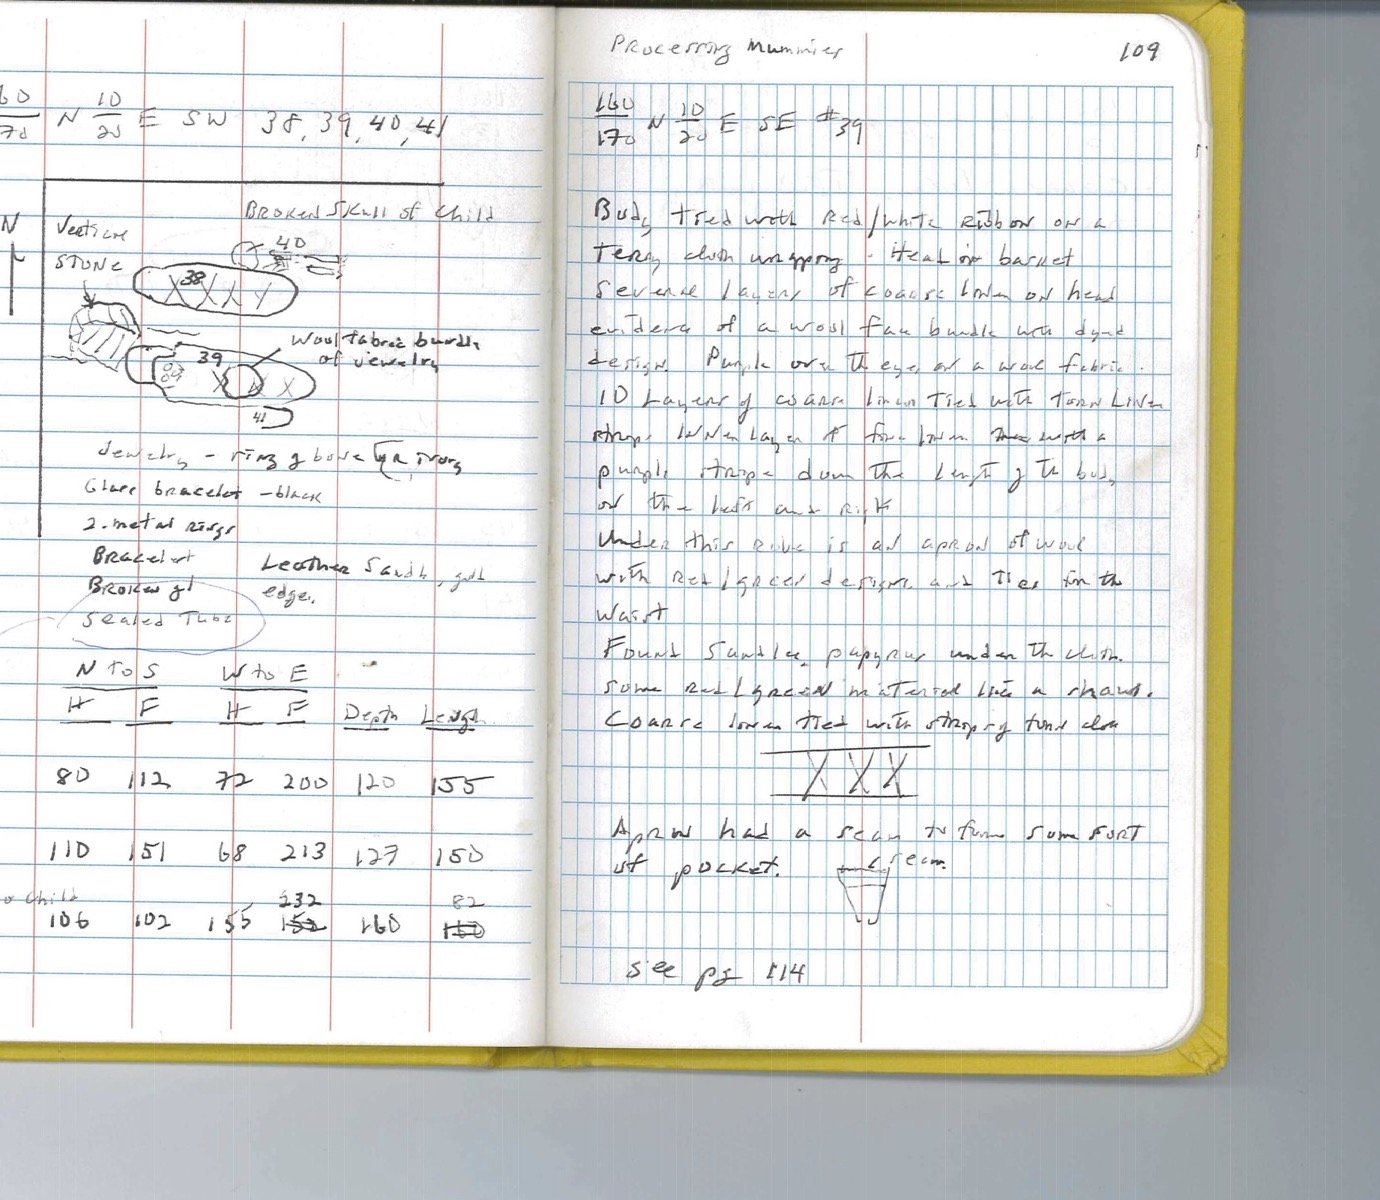 60/70 N 10/20 E SW 38, 39, 40, 41
N
Broken Skull of Child
Vertical
STONE
40
38
Wool fabric bundle
of Jewelry
39
41
Jewelry - ring of bone or ivory
Glass bracelet - black
2 metal rings
Bracelet
Broken gl
Sealed Tube
Leather Sandle, gold
edge.
N to S W to E
H F H F Depth Length
80 112 72 200 120 155
110 151 68 213 127 150
Child 232 82
106 102 155 152 160 160
Processing Mummies 109
160/170 N 10/20 E SE #39
Body tied with Red/white Ribbon on a
Terry cloth wrapping. Head in basket
Several layers of coarse linen on head
evidence of a wool face bundle with dyed
design. Purple over the eyes on a wool fabric.
10 Layers of coarse linen tied with torn Linen
strips. Inner layer of fine linen with a
purple stripe down the length of the body
on the left and right
Under this Robe is an apron of wool
with Red/green designs and Ties for the
Waist
Found Sandle, papyrus under the cloth.
some Red/green material like a shawl.
Coarse linen tied with strips of
XXX
Apron had a seam to form some sort
of pocket. seam.
see pg 114